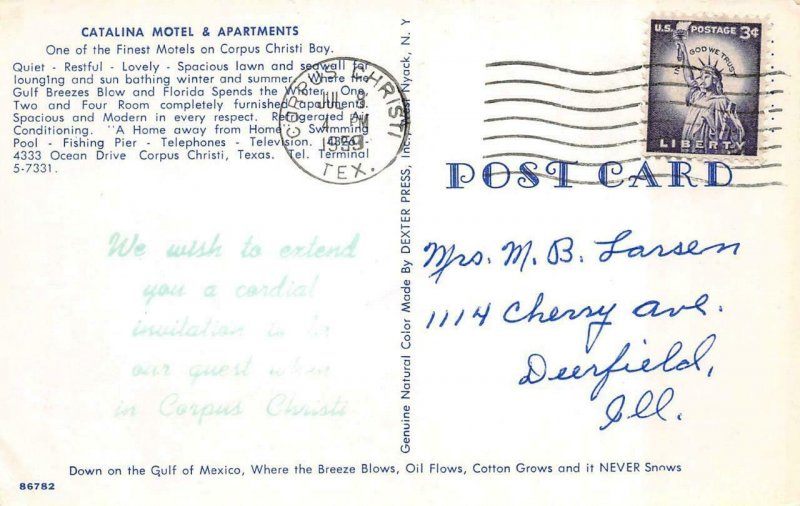 CATALINA MOTEL & APARTMENTS
One of the Finest Motels on Corpus Christi Bay.
Quiet - Restful - Lovely - Spacious lawn and seawall for
lounging and sun bathing winter and summer. Where the
Gulf Breezes Blow and Florida Spends the Winter. One,
Two and Four Room completely furnished apartments.
Spacious and Modern in every respect. Refrigerated Air
Conditioning. "A Home away from Home". Swimming
Pool - Fishing Pier - Telephones - Television.
4333 Ocean Drive Corpus Christi, Texas. Tel. Terminal
5-7331.
CORPUS CHRISTI
JUL 8
4 PM
1959
TEX.
U.S. POSTAGE 3¢
IN GOD WE TRUST
LIBERTY
POST CARD
We wish to extend
you a cordial
invitation to be
our guest when
in Corpus Christi
Genuine Natural Color Made By DEXTER PRESS, Inc., West Nyack, N. Y
Mrs. M. B. Larsen
1114 Cherry Ave.
Deerfield,
Ill.
Down on the Gulf of Mexico, Where the Breeze Blows, Oil Flows, Cotton Grows and it NEVER Snows
86782